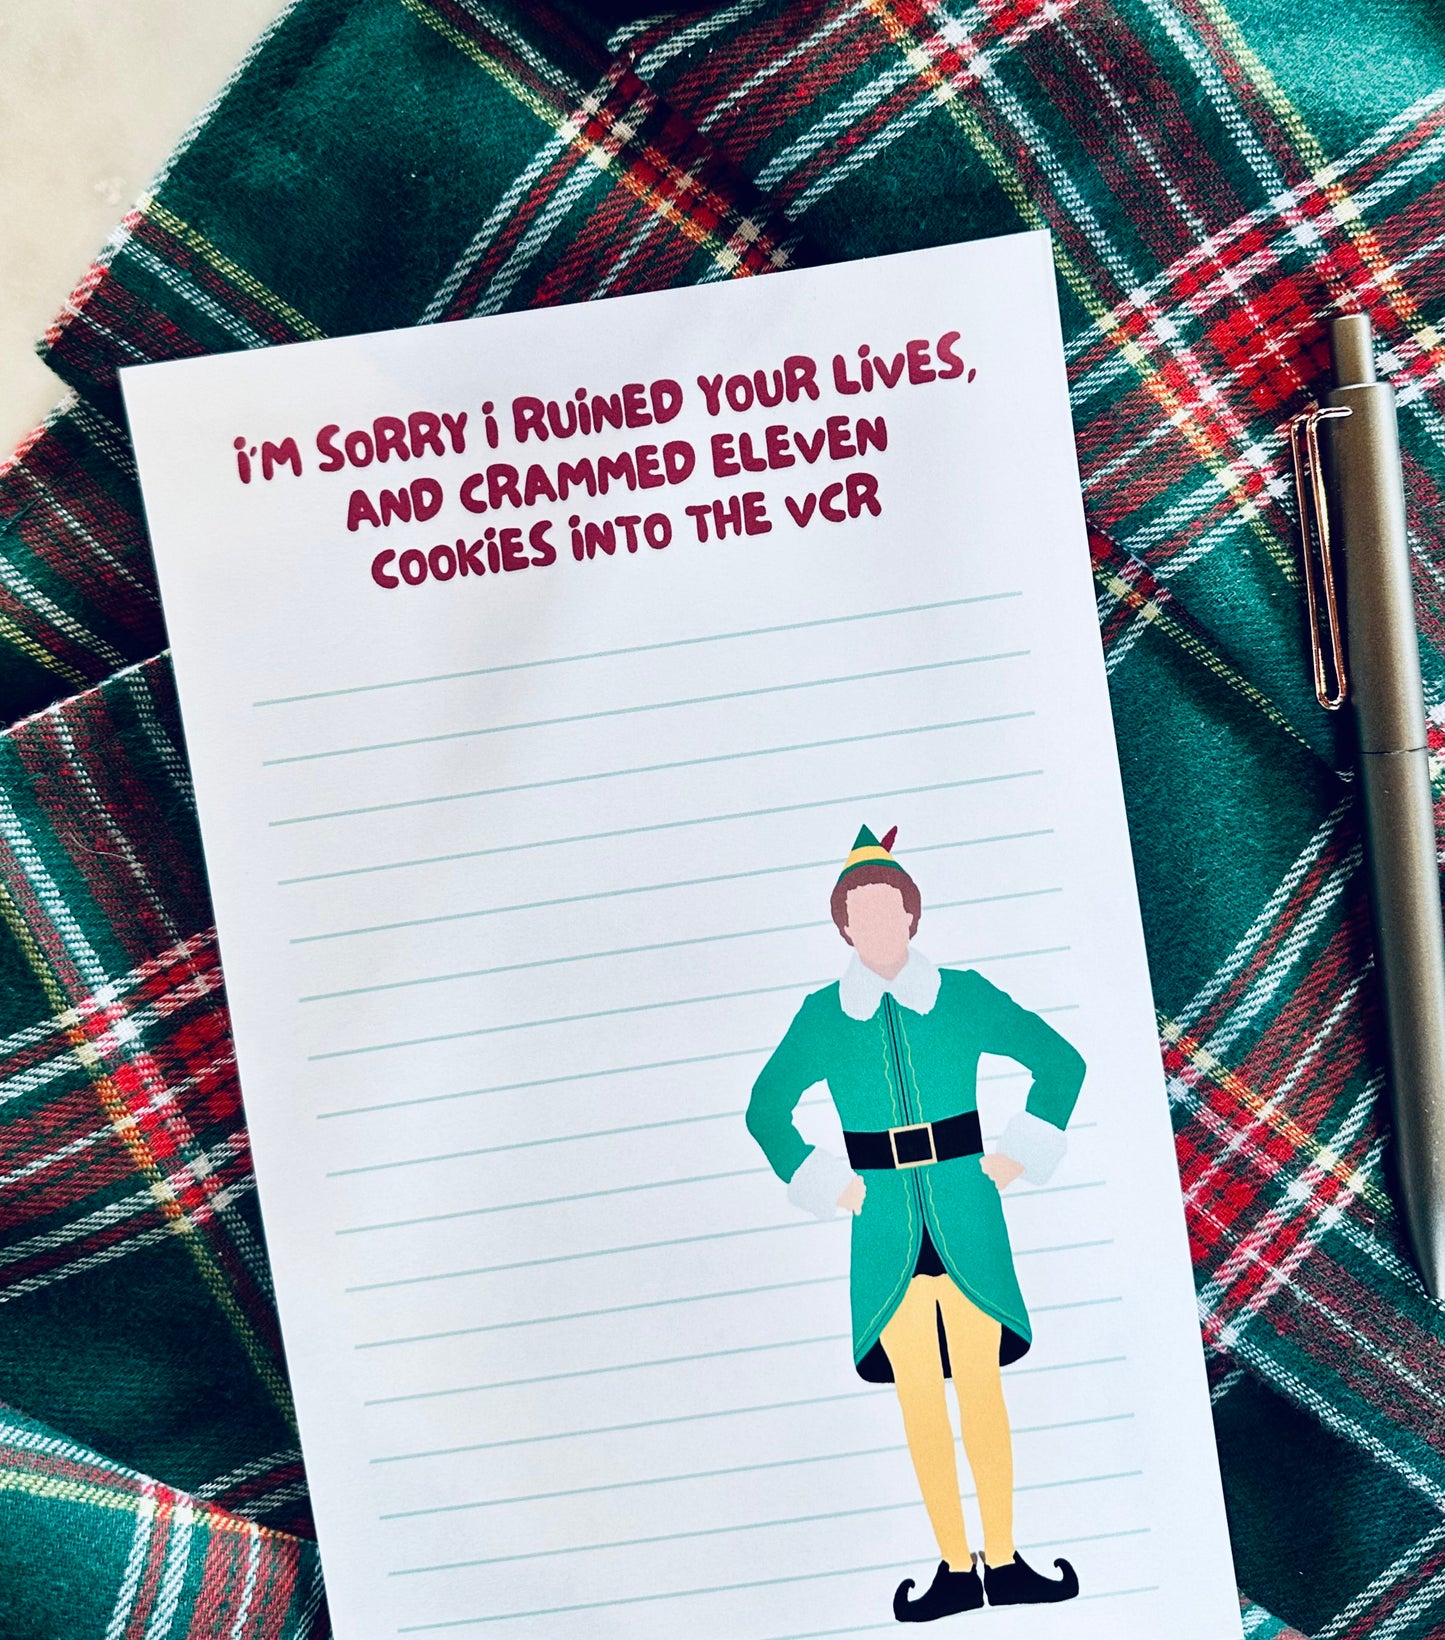 i'M SORRY i RUiNED YOUR LiVES,
AND CRAMMED ELEVEN
COOKiES iNTO THE VCR